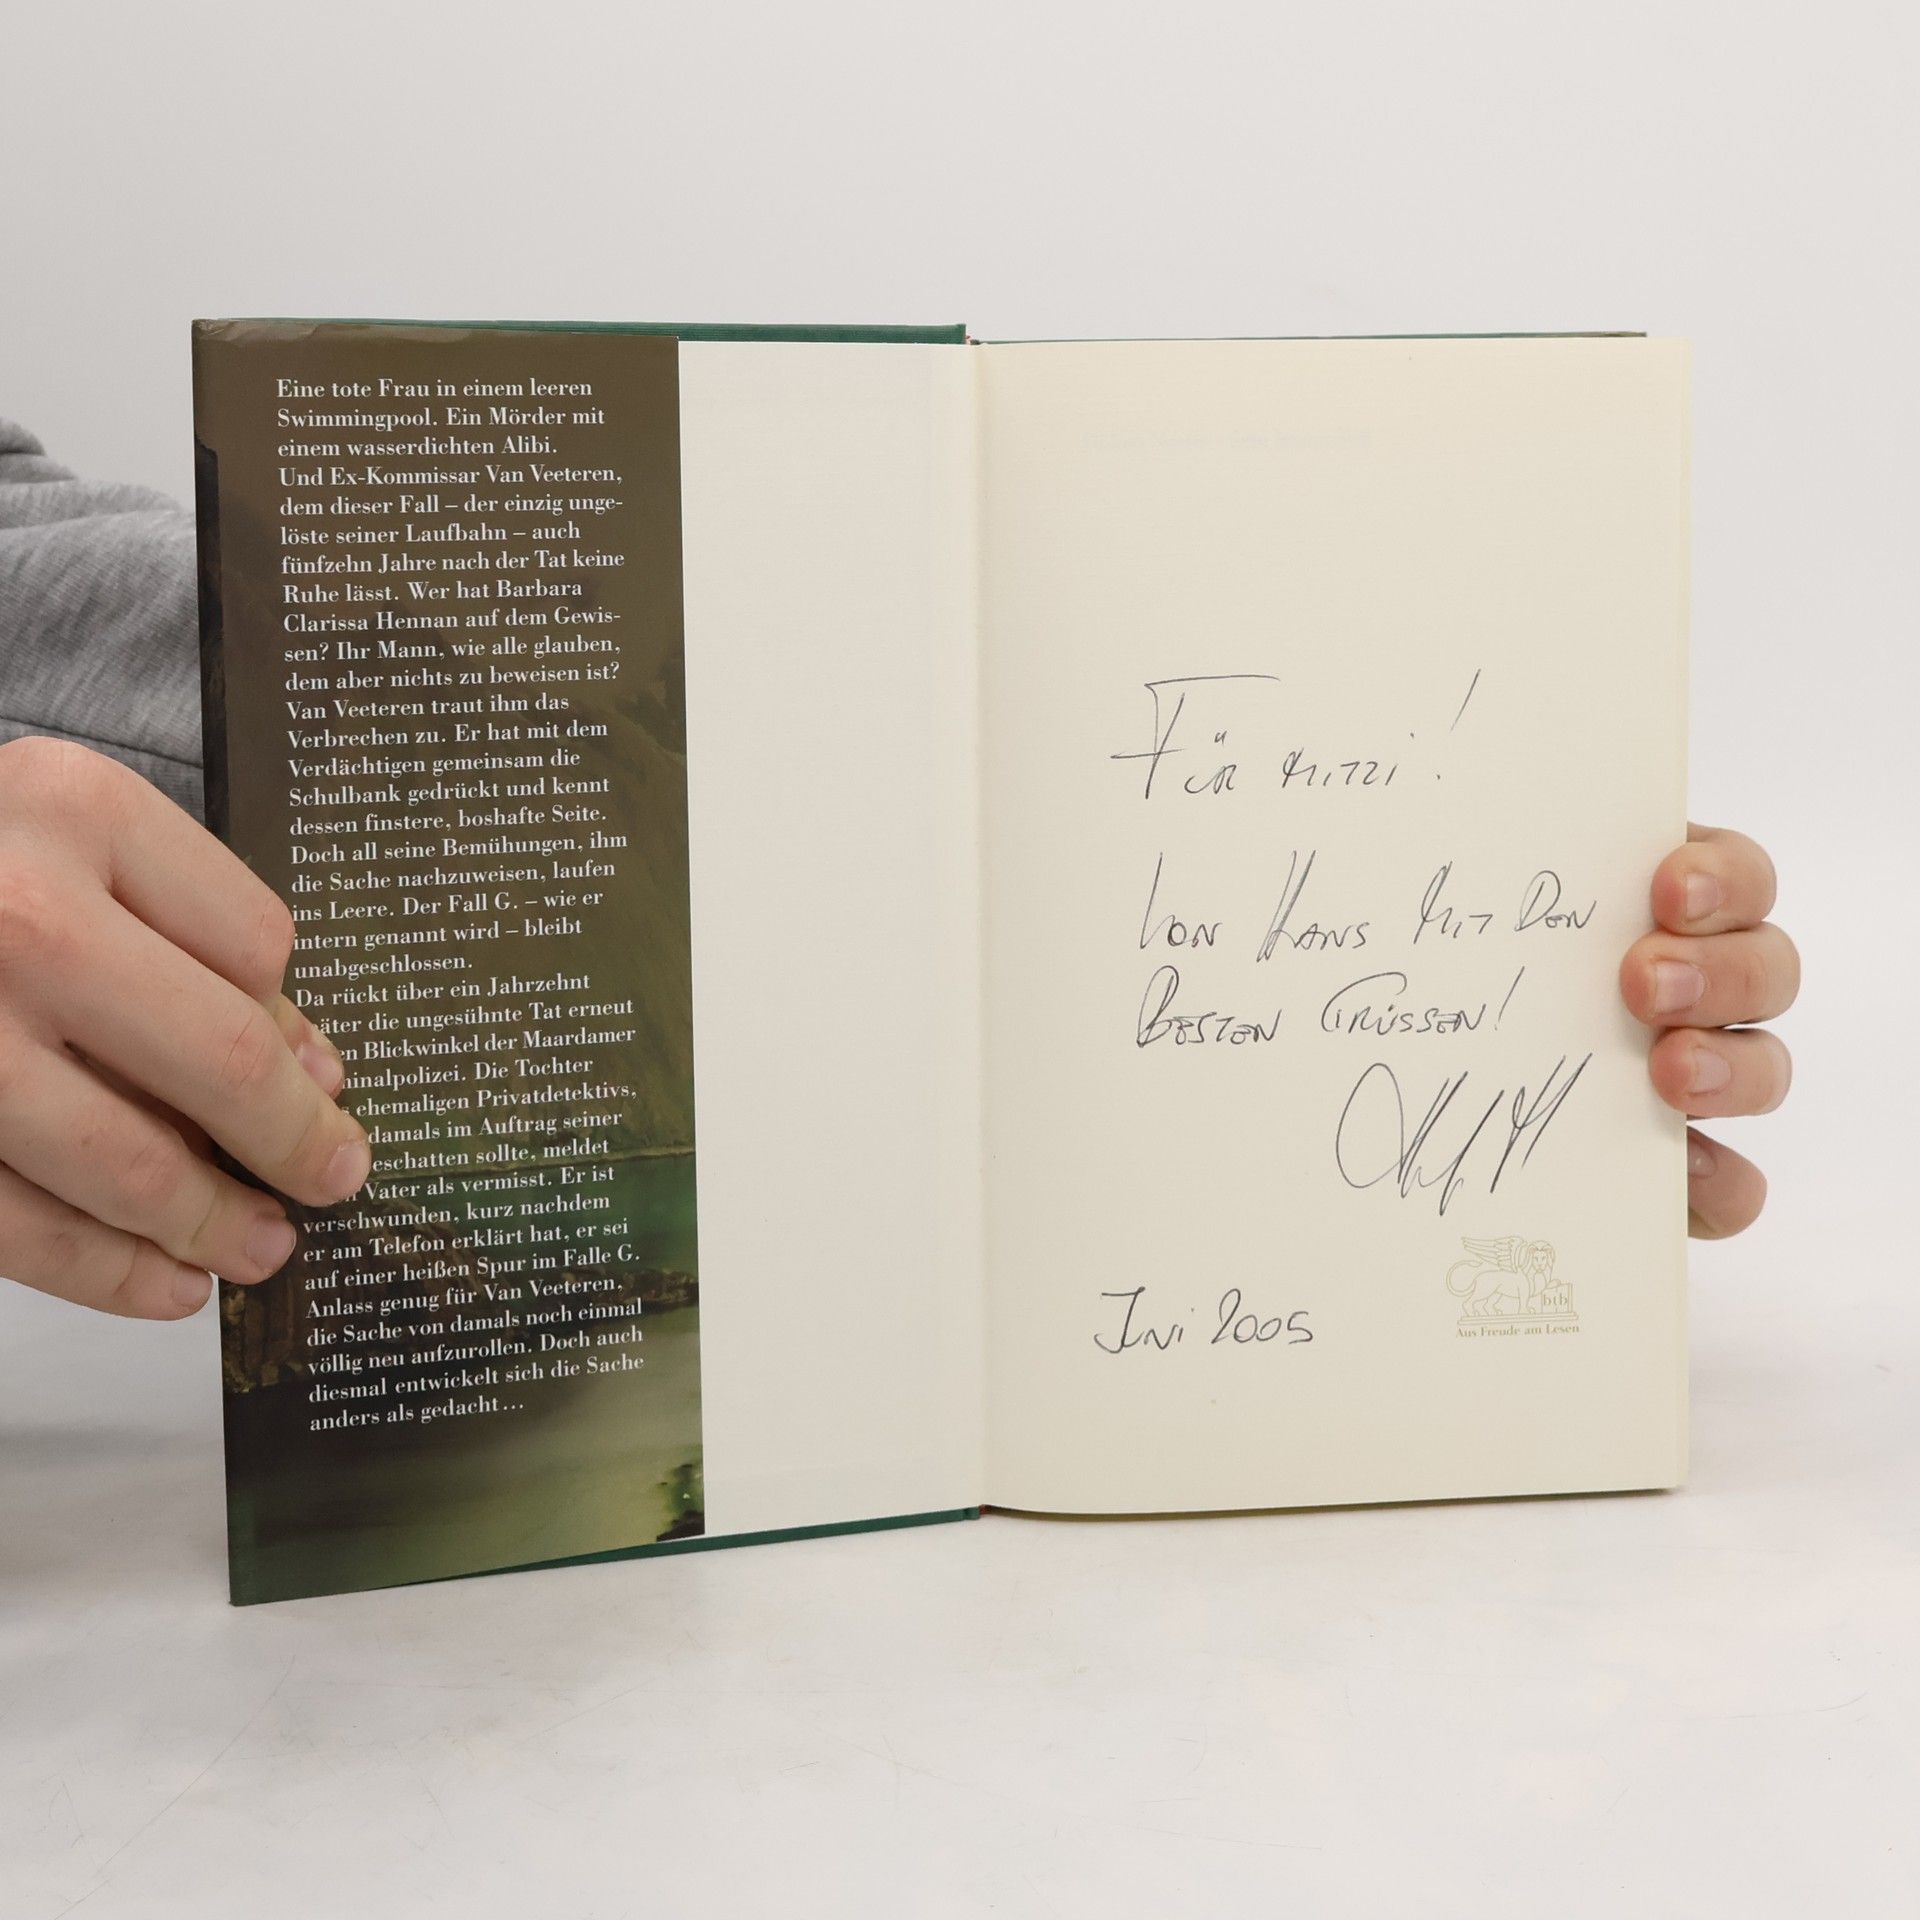 Eine tote Frau in einem leeren
Swimmingpool. Ein Mörder mit
einem wasserdichten Alibi.
Und Ex-Kommissar Van Veeteren,
dem dieser Fall – der einzig unge-
löste seiner Laufbahn – auch
fünfzehn Jahre nach der Tat keine
Ruhe lässt. Wer hat Barbara
Clarissa Hennan auf dem Gewis-
sen? Ihr Mann, wie alle glauben,
dem aber nichts zu beweisen ist?
Van Veeteren traut ihm das
Verbrechen zu. Er hat mit dem
Verdächtigen gemeinsam die
Schulbank gedrückt und kennt
dessen finstere, boshafte Seite.
Doch all seine Bemühungen, ihm
die Sache nachzuweisen, laufen
ins Leere. Der Fall G. – wie er
intern genannt wird – bleibt
unabgeschlossen.
Da rückt über ein Jahrzehnt
äter die ungesühnte Tat erneut
en Blickwinkel der Maardamer
minalpolizei. Die Tochter
s ehemaligen Privatdetektivs,
damals im Auftrag seiner
eschatten sollte, meldet
Vater als vermisst. Er ist
verschwunden, kurz nachdem
er am Telefon erklärt hat, er sei
auf einer heißen Spur im Falle G.
Anlass genug für Van Veeteren,
die Sache von damals noch einmal
völlig neu aufzurollen. Doch auch
diesmal entwickelt sich die Sache
anders als gedacht...
Für Mitzi!
Von Hans Mit Den
Besten Grüssen!
Juni 2005
btb
Aus Freude am Lesen